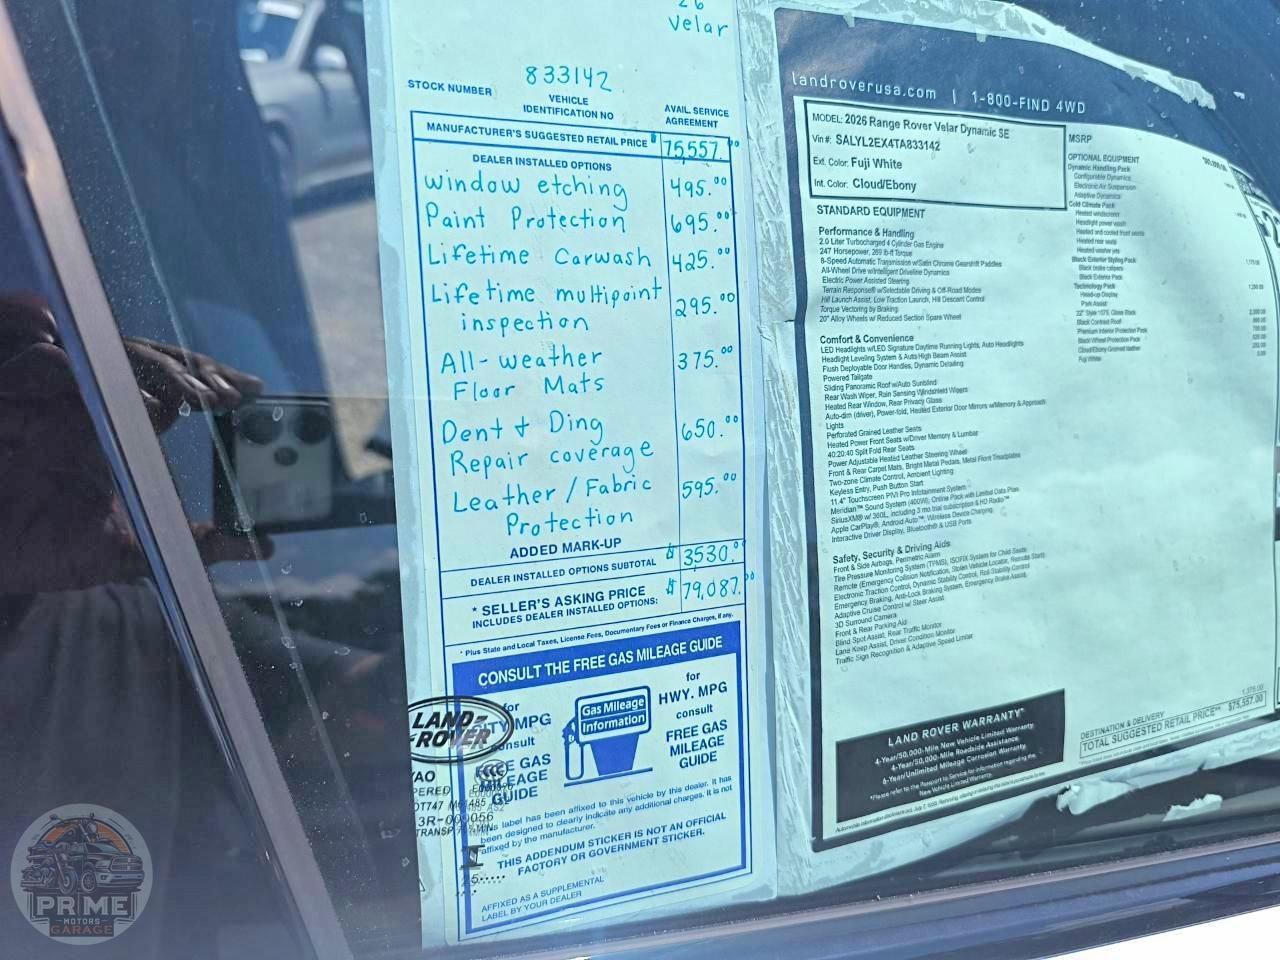 26
Velar
833142
STOCK NUMBER
VEHICLE
IDENTIFICATION NO
AVAIL. SERVICE
AGREEMENT
MANUFACTURER'S SUGGESTED RETAIL PRICE $ 75557.00
DEALER INSTALLED OPTIONS
window etching 495.00
Paint Protection 695.00
Lifetime Carwash 425.00
Lifetime multipoint
inspection 295.00
All-weather 375.00
Floor Mats
Dent & Ding 650.00
Repair coverage
Leather/Fabric 595.00
Protection
ADDED MARK-UP
DEALER INSTALLED OPTIONS SUBTOTAL $ 3530.00
* SELLER'S ASKING PRICE $ 79,087.00
INCLUDES DEALER INSTALLED OPTIONS:
* Plus State and Local Taxes, License Fees, Documentary Fees or Finance Charges, if any.
CONSULT THE FREE GAS MILEAGE GUIDE
for
CITY MPG
consult
FREE GAS
MILEAGE
GUIDE
Gas Mileage
Information
for
HWY. MPG
consult
FREE GAS
MILEAGE
GUIDE
This label has been affixed to this vehicle by this dealer. It has
been designed to clearly indicate any additional charges. It is not
affixed by the manufacturer.
THIS ADDENDUM STICKER IS NOT AN OFFICIAL
FACTORY OR GOVERNMENT STICKER.
AFFIXED AS A SUPPLEMENTAL
LABEL BY YOUR DEALER
LAND-
ROVER
landroverusa.com | 1-800-FIND 4WD
MODEL: 2026 Range Rover Velar Dynamic SE
Vin #: SALYL2EX4TA833142
Ext. Color: Fuji White
Int. Color: Cloud/Ebony
STANDARD EQUIPMENT
Performance & Handling
2.0 Liter Turbocharged 4 Cylinder Gas Engine
247 Horsepower, 269 lb-ft Torque
8-Speed Automatic Transmission w/Satin Chrome Gearshift Paddles
All-Wheel Drive w/Intelligent Driveline Dynamics
Electric Power Assisted Steering
Terrain Response® w/Selectable Driving & Off-Road Modes
Hill Launch Assist, Low Traction Launch, Hill Descent Control
Torque Vectoring by Braking
20" Alloy Wheels w/ Reduced Section Spare Wheel
Comfort & Convenience
LED Headlights w/LED Signature Daytime Running Lights, Auto Headlights
Headlight Leveling System & Auto High Beam Assist
Flush Deployable Door Handles, Dynamic Detailing
Powered Tailgate
Sliding Panoramic Roof w/Auto Sunblind
Rear Wash Wiper, Rain Sensing Windshield Wipers
Heated Rear Window, Rear Privacy Glass
Auto-dim (driver), Power-fold, Heated Exterior Door Mirrors w/Memory & Approach
Lights
Perforated Grained Leather Seats
Heated Power Front Seats w/Driver Memory & Lumbar
40:20:40 Split Fold Rear Seats
Power Adjustable Heated Leather Steering Wheel
Front & Rear Carpet Mats, Bright Metal Pedals, Metal Front Treadplates
Two-zone Climate Control, Ambient Lighting
Keyless Entry, Push Button Start
11.4" Touchscreen PIVI Pro Infotainment System
Meridian™ Sound System (400W), Online Pack with Limited Data Plan
SiriusXM® w/ 360L, including 3 mo trial subscription & HD Radio™
Apple CarPlay®, Android Auto™, Wireless Device Charging
Interactive Driver Display, Bluetooth® & USB Ports
Safety, Security & Driving Aids
Front & Side Airbags, Perimetric Alarm
Tire Pressure Monitoring System (TPMS), ISOFIX System for Child Seats
Remote (Emergency Collision Notification, Stolen Vehicle Locator, Remote Start)
Electronic Traction Control, Dynamic Stability Control, Roll Stability Control
Emergency Braking, Anti-Lock Braking System, Emergency Brake Assist
Adaptive Cruise Control w/ Steer Assist
3D Surround Camera
Front & Rear Parking Aid
Blind Spot Assist, Rear Traffic Monitor
Lane Keep Assist, Driver Condition Monitor
Traffic Sign Recognition & Adaptive Speed Limiter
MSRP
OPTIONAL EQUIPMENT
Dynamic Handling Pack
Configurable Dynamics
Electronic Air Suspension
Adaptive Dynamics
Cold Climate Pack
Heated windscreen
Headlight power wash
Heated and cooled front seats
Heated rear seats
Heated washer jets
Black Exterior Styling Pack
Black brake calipers
Black Exterior Pack
Technology Pack
Head-up Display
Park Assist
Black Contrast Roof
Premium Interior Protection Pack
Black Wheel Protection Pack
Cloud/Ebony Grained leather
Fuji White
LAND ROVER WARRANTY*
4-Year/50,000-Mile New Vehicle Limited Warranty
4-Year/50,000-Mile Roadside Assistance
6-Year/Unlimited Mileage Corrosion Warranty
*Please refer to the Passport to Service for information regarding the
New Vehicle Limited Warranty.
DESTINATION & DELIVERY 1,375.00
TOTAL SUGGESTED RETAIL PRICE** $75,557.00
PRIME
MOTORS
GARAGE